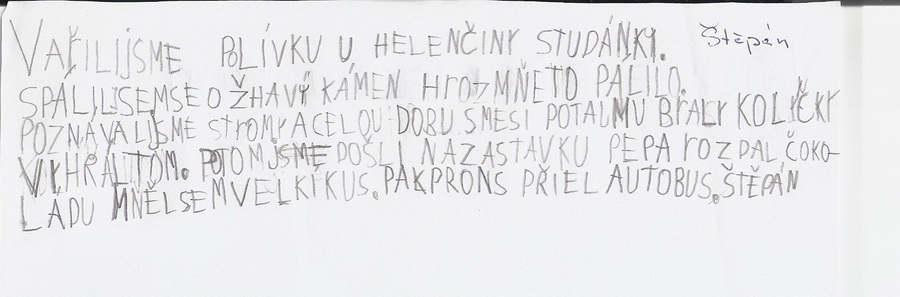 VAŘILIJSME POLÍVKU U HELENČINY STUDÁŇKY. Štěpán
SPÁLILJSEMSE O ŽHAVÝ KÁMEN HROZMŇETO PÁLILO.
POZNÁVALIJSME STROMY ACELOU DOBU SMESI POTAJMU BRALY KOLÍČKY
VYHRÁLITOM. POTOMJSME POŠLI NAZASTÁVKU PEPA ROZDAL ČOKO-
LÁDU MNĚLSEMVELKÍKUS. PAKPRONS PŘIEL AUTOBUS. ŠTĚPÁN